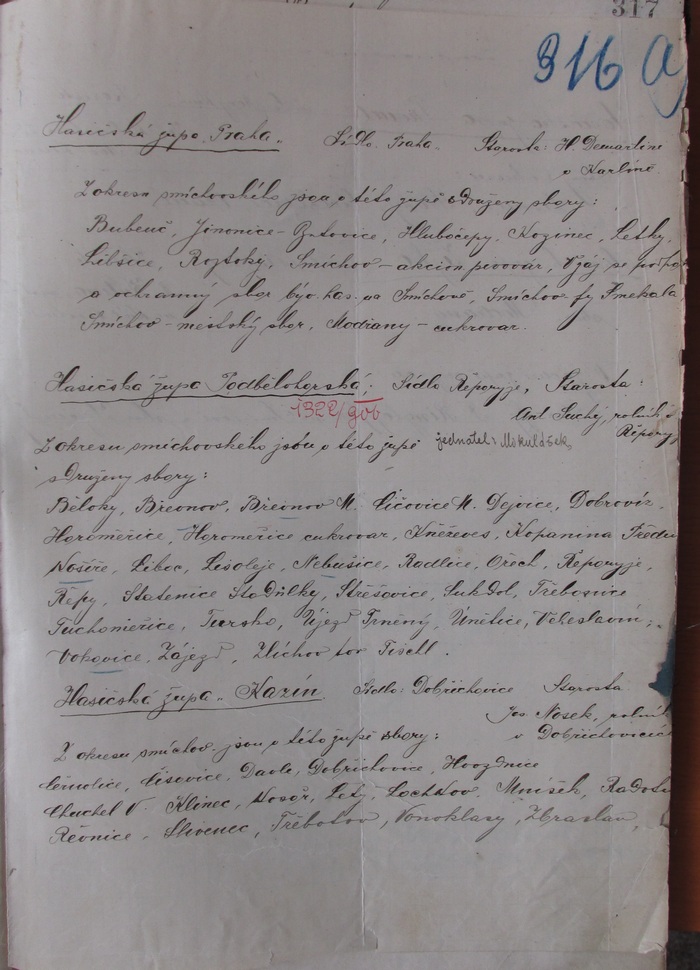 317
316 a
Hasičská župa Praha. Sídlo Praha. Starosta: H. Demartini
v Karlíně
Z okresu smíchovského jsou v této župě sdruženy sbory:
Bubeneč, Jinonice-Butovice, Hlubočepy, Kozinec, Letky,
Libšice, Roztoky, Smíchov-akcion. pivovár,
a ochranný sbor na Smíchově, Smíchov fy
Smíchov - městský sbor, Modřany - cukrovar.
Hasičská župa Podbělohorská; Sídlo Řeporyje, Starosta:
1322/906
Ant. Suchý, rolník v
Řepory
Z okresu smíchovského jsou v této župě jednatel: Mikulášek
sdruženy sbory:
Běloky, Břevnov, Břevnov M. Čičovice M. Dejvice, Dobrovíz,
Horoměřice, Horoměřice cukrovar, Kněževes, Kopanina Předn
Nosíře, Liboc, Lisoleje, Nebušice, Radlice, Ořech, Řeporyje,
Řepy, Statenice Stodůlky, Střešovice, Sukdol, Třebonice
Tuchoměřice, Tursko, Újezd Trněný, Únětice, Veleslavín;
Vokovice, Zájezd, Zlíchov tov. Tischl.
Hasičská župa Kazín Sídlo: Dobřichovice Starosta
Jos. Nosek, rolník
v Dobřichovicích
Z okresu smíchov. jsou v této župě sbory:
Černolice, Čisovice, Davle, Dobřichovice, Hvozdnice
Chuchel V. Klinec, Kosoř, Lety, Lochkov, Mníšek, Radotín
Řevnice, Slivenec, Třebotov, Vonoklasy, Zbraslav,